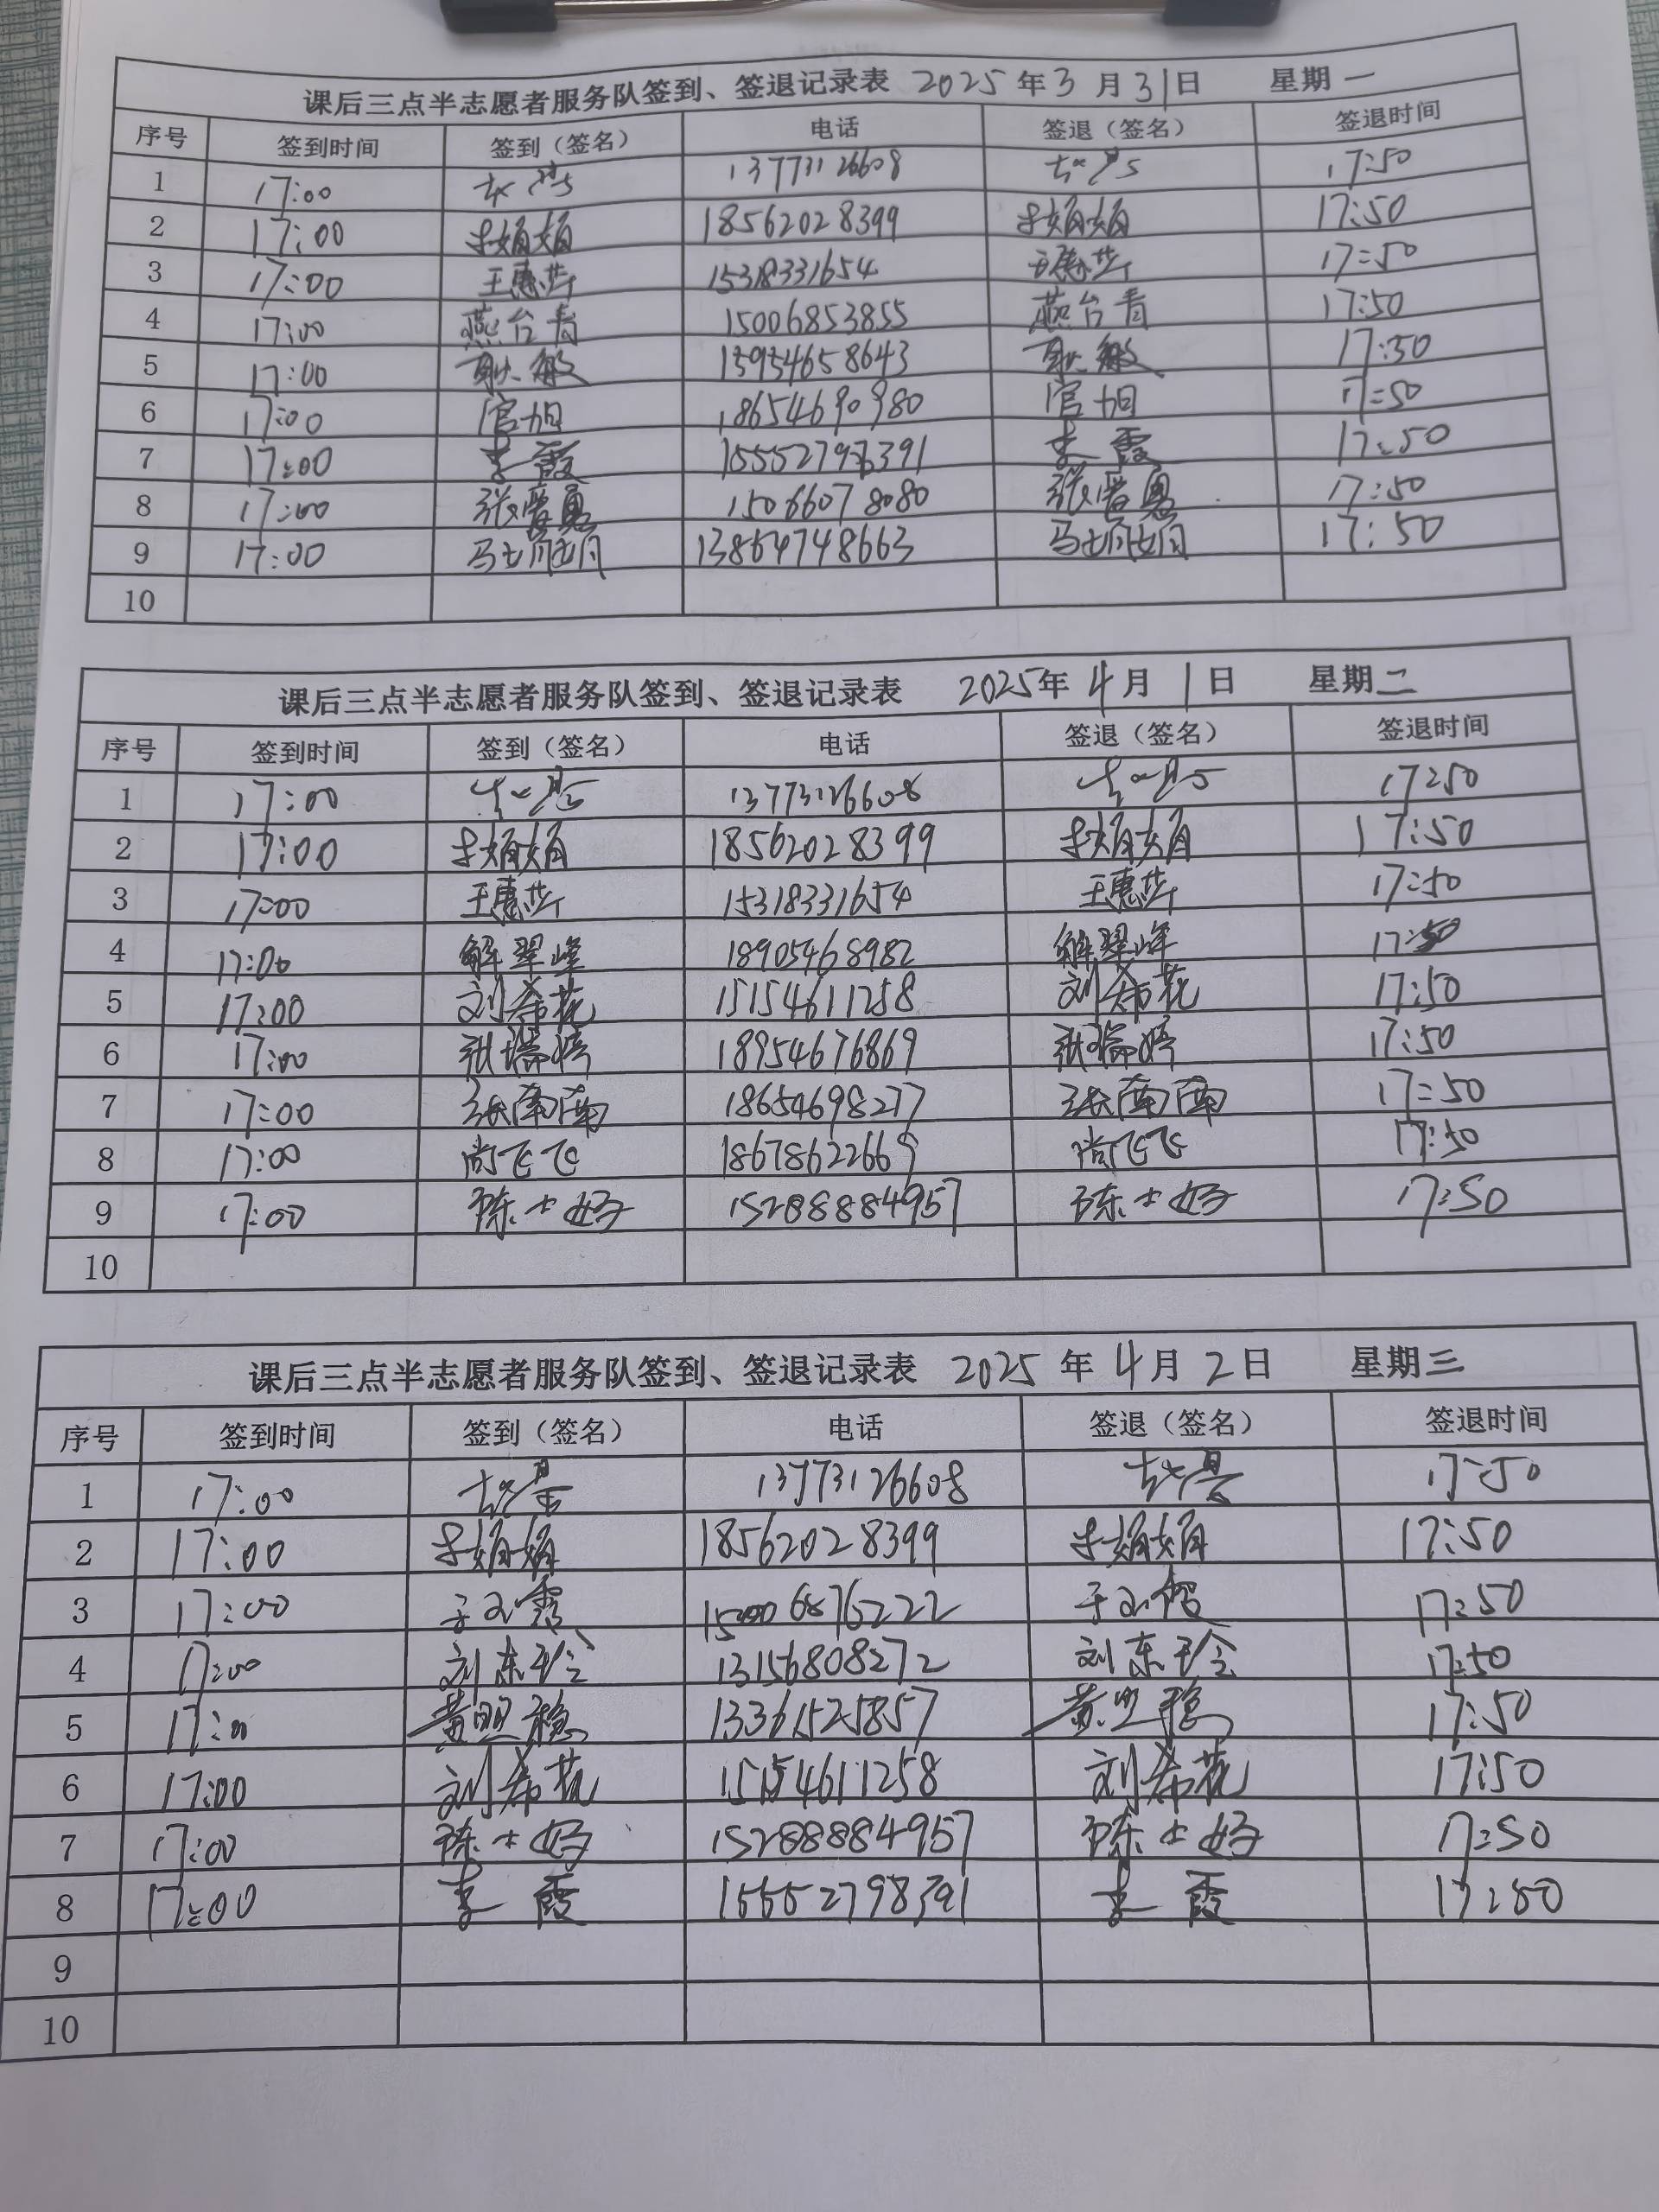 课后三点半志愿者服务队签到、签退记录表 2025年3月31日 星期一
序号 签到时间 签到（签名） 电话 签退（签名） 签退时间
1 17:00 13773126608 17:50
2 17:00 娟娟 18562028399 娟娟 17:50
3 17:00 王惠芹 15318331654 王惠芹 17:50
4 17:00 燕台青 15006853855 燕台青 17:50
5 17:00 耿敏 15954658643 耿敏 17:50
6 17:00 官旭 18654690980 官旭 17:50
7 17:00 李霞 15552798391 李霞 17:50
8 17:00 张晋勇 15066078080 张晋勇 17:50
9 17:00 马娟娟 13864748663 马娟娟 17:50
10
课后三点半志愿者服务队签到、签退记录表 2025年4月1日 星期二
序号 签到时间 签到（签名） 电话 签退（签名） 签退时间
1 17:00 13773126608 17:50
2 17:00 娟娟 18562028399 娟娟 17:50
3 17:00 王惠芹 15318331654 王惠芹 17:50
4 17:00 解翠峰 18905468982 解翠峰 17:50
5 17:00 刘希花 15154611258 刘希花 17:50
6 17:00 张瑞婷 18954676869 张瑞婷 17:50
7 17:00 张南南 18654698277 张南南 17:50
8 17:00 尚飞飞 18678622669 尚飞飞 17:50
9 17:00 陈士好 15288884957 陈士好 17:50
10
课后三点半志愿者服务队签到、签退记录表 2025年4月2日 星期三
序号 签到时间 签到（签名） 电话 签退（签名） 签退时间
1 17:00 13773126608 17:50
2 17:00 娟娟 18562028399 娟娟 17:50
3 17:00 17:50
4 17:00 刘东玲 13156808272 刘东玲 17:50
5 17:00 黄照稳 13361525857 黄照稳 17:50
6 17:00 刘希花 15154611258 刘希花 17:50
7 17:00 陈士好 15288884957 陈士好 17:50
8 17:00 李霞 15552798391 李霞 17:50
9
10